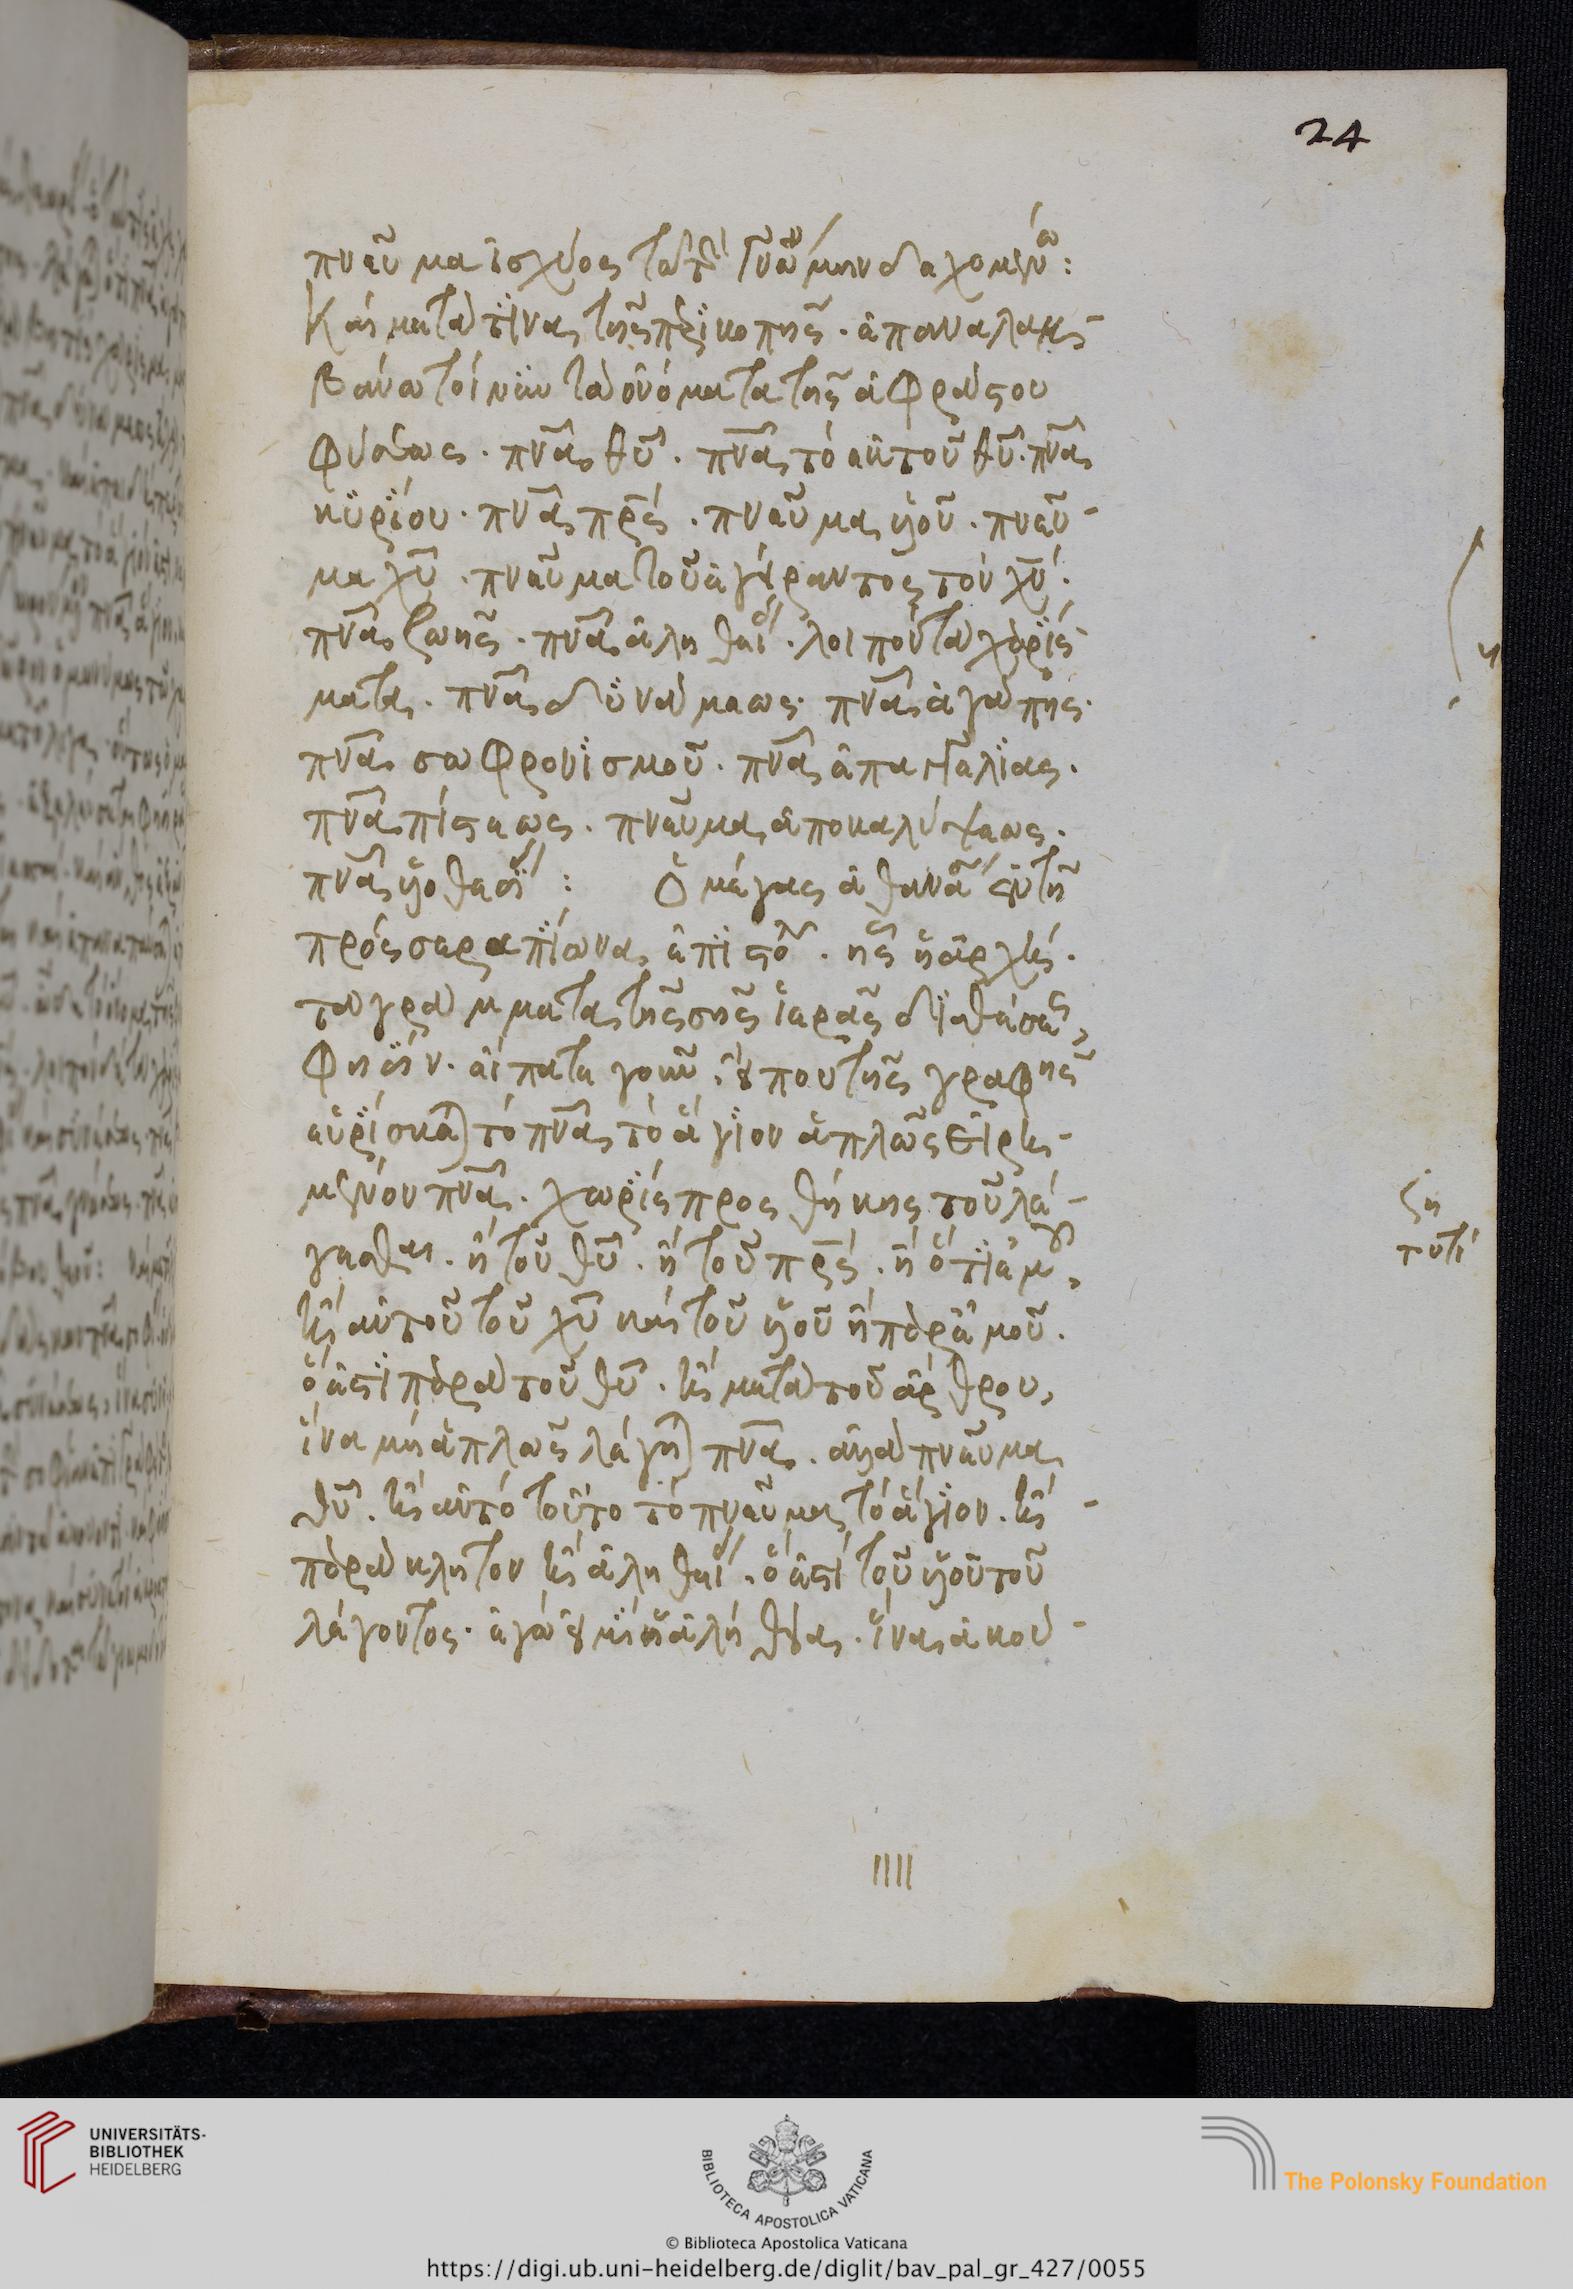 24
πνεῦμα ἰσχύος
Καὶ μετά τινας τῆς περικοπῆς · ἐπαναλαμ-
βάνω τοίνυν τὰ ὀνόματα τῆς ἀφράστου
φύσεως · πνα θυ · πνα τὸ ἐκ τοῦ θυ · πνα
κυρίου · πνα πρς · πνεῦμα υἱοῦ · πνεῦ-
μα χυ · πνεῦμα τοῦ ἐγείραντος τὸν χν ·
πνα ζωῆς · πνα ἀληθεί · λοιπὸν τὰ χαρίσ-
ματα · πνα δυνάμεως · πνα ἀγάπης ·
πνα σωφρονισμοῦ · πνα ἐπαγγελίας ·
πνα πίστεως · πνεῦμα ἀποκαλύψεως ·
πνα υἱοθεσί : Ὁ μέγας ἀθανάσ ἐν τῆ
πρὸς σεραπίωνα ἐπιστο · ἧς ἡ ἀρχὴ ·
τὰ γράμματα τῆς σῆς ἱερᾶς διαθέσε
φησίν · εἴπατε γοῦν · εἴ που τῆς γραφῆς
εὑρίσκε τὸ πνα τὸ ἅγιον ἁπλῶς εἰρη-
μένον πνα · χωρὶς προσθήκης τοῦ λέ-
γεσθαι · ἢ τοῦ θυ · ἢ τοῦ πρς · ἢ ὅτι ἐμ
καὶ αὐτοῦ τοῦ χυ καὶ τοῦ υἱοῦ ἢ παρ' ἐμοῦ ·
ὅ ἐστι παρὰ τοῦ θυ · καὶ μετὰ τοῦ ἄρθρου,
ἵνα μὴ ἁπλῶς λέγη πνα · ἀλλὰ πνεῦμα
θυ · καὶ αὐτὸ τοῦτο τὸ πνεῦμα τὸ ἅγιον · καὶ -
παράκλητον καὶ ἀληθεί · ὅ ἐστι τοῦ υἱοῦ τοῦ
λέγοντος · ἐγώ εἰμι ἡ ἀλήθεια · ἵνα ἀκού-
ζη
τυτὶ
UNIVERSITÄTS-
BIBLIOTHEK
HEIDELBERG
BIBLIOTECA APOSTOLICA VATICANA
The Polonsky Foundation
© Biblioteca Apostolica Vaticana
https://digi.ub.uni-heidelberg.de/diglit/bav_pal_gr_427/0055